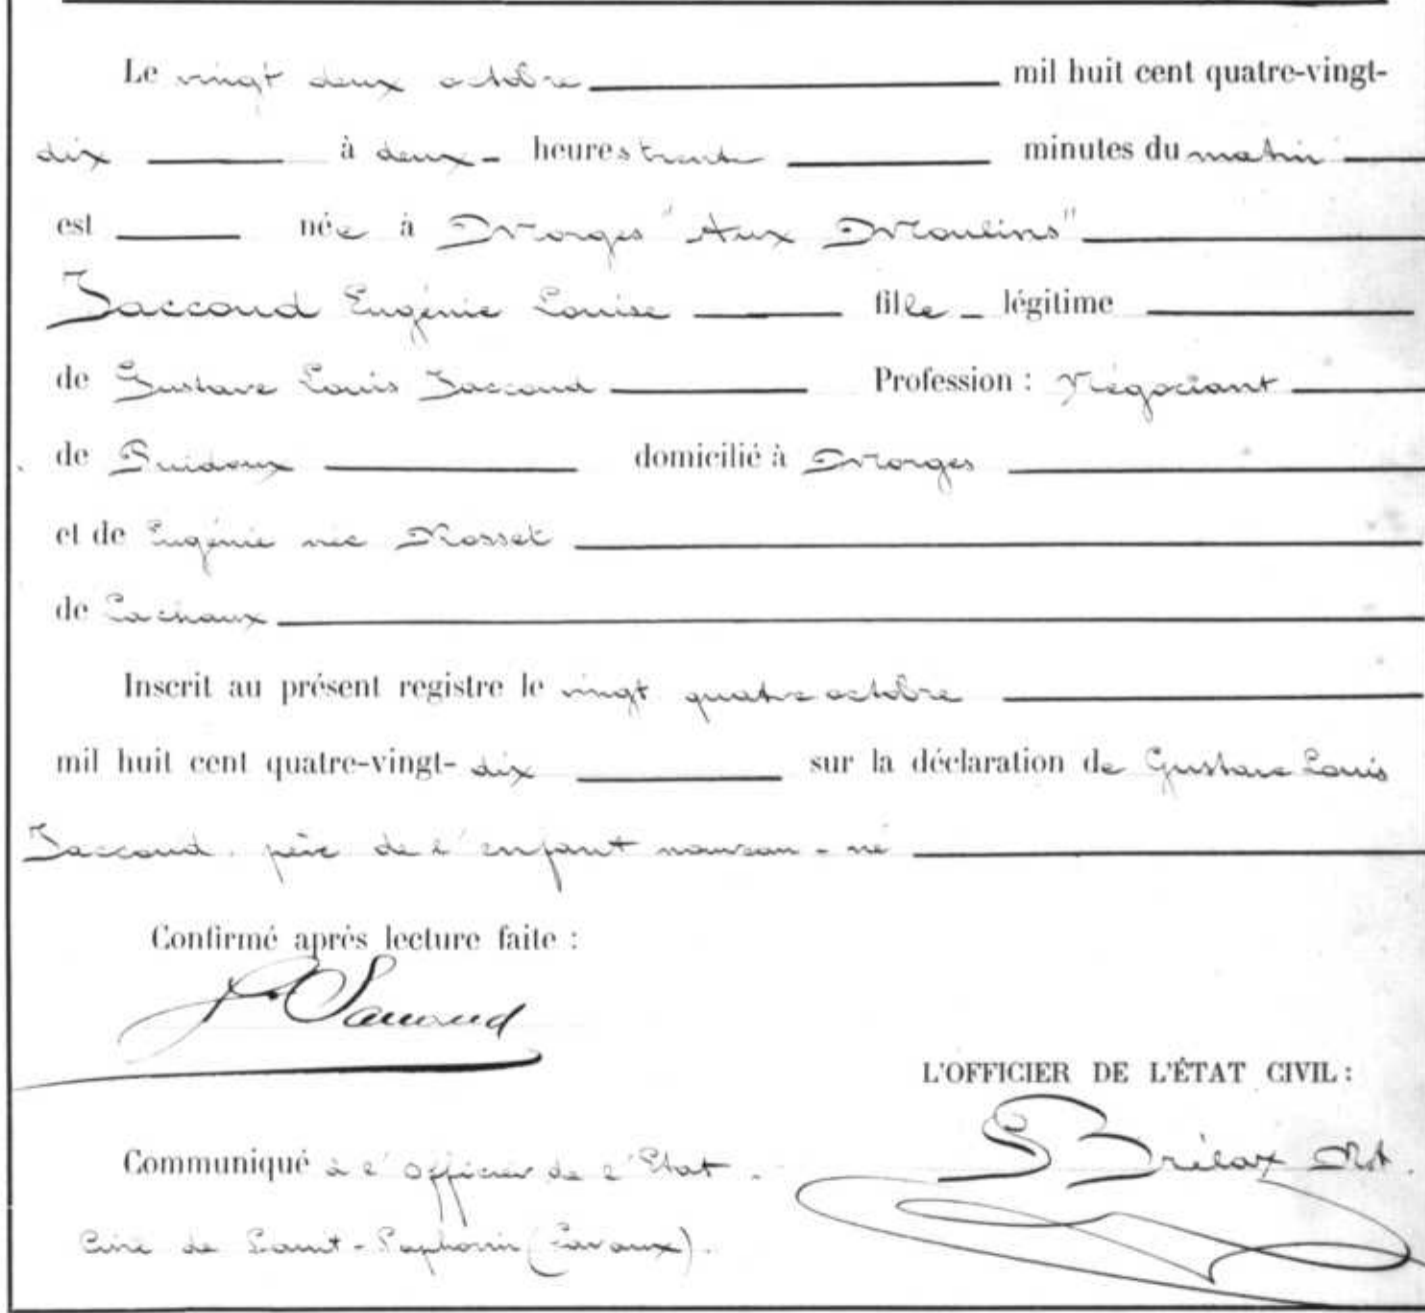 Le vingt deux octobre mil huit cent quatre-vingt-
dix à deux heures trente minutes du matin
est née à Morges "Aux Moulins"
Jaccoud Eugénie Louise fille légitime
de Gustave Louis Jaccoud Profession : Négociant
de Puidoux domicilié à Morges
et de Eugénie née Mosset
de
Inscrit au présent registre le vingt quatre octobre
mil huit cent quatre-vingt-dix sur la déclaration de Gustave Louis
Jaccoud, père de l'enfant nouveau-né
Confirmé après lecture faite :
Jaccoud
L'OFFICIER DE L'ÉTAT CIVIL :
Communiqué à l'Officier de l'Etat
Civil de Saint-Saphorin (Lavaux).